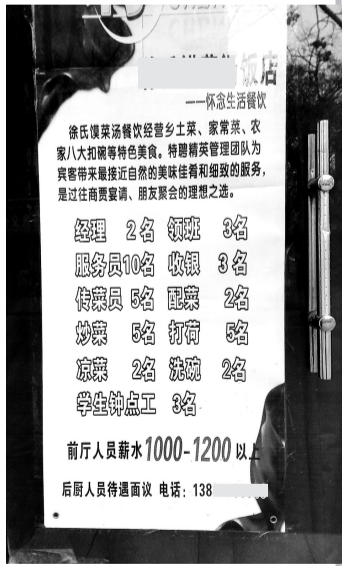 饭店
——怀念生活餐饮
徐氏馍菜汤餐饮经营乡土菜、家常菜、农
家八大扣碗等特色美食。特聘精英管理团队为
宾客带来最接近自然的美味佳肴和细致的服务，
是过往商贾宴请、朋友聚会的理想之选。
经理 2名 领班 3名
服务员10名 收银 3名
传菜员 5名 配菜 2名
炒菜 5名 打荷 5名
凉菜 2名 洗碗 2名
学生钟点工 3名
前厅人员薪水1000-1200以上
后厨人员待遇面议 电话：138